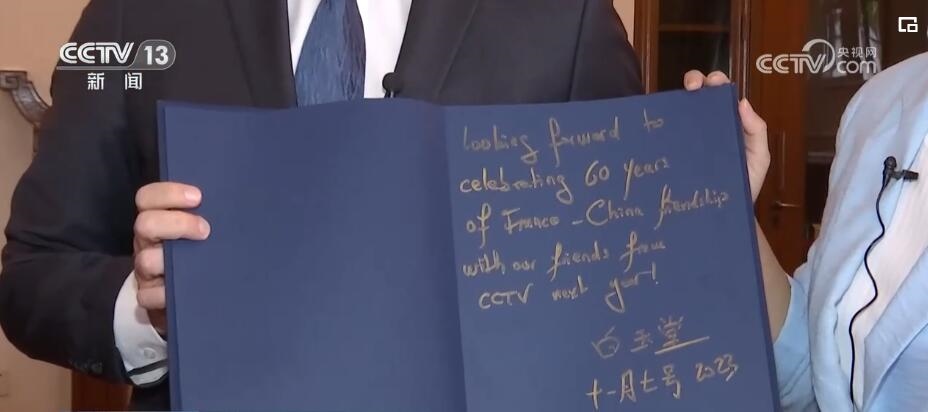 CCTV 13
新闻
央视网
CCTV.com
Looking forward to
celebrating 60 years
of France-China friendship
with our friends from
CCTV next year!
白玉堂
十一月七号 2023